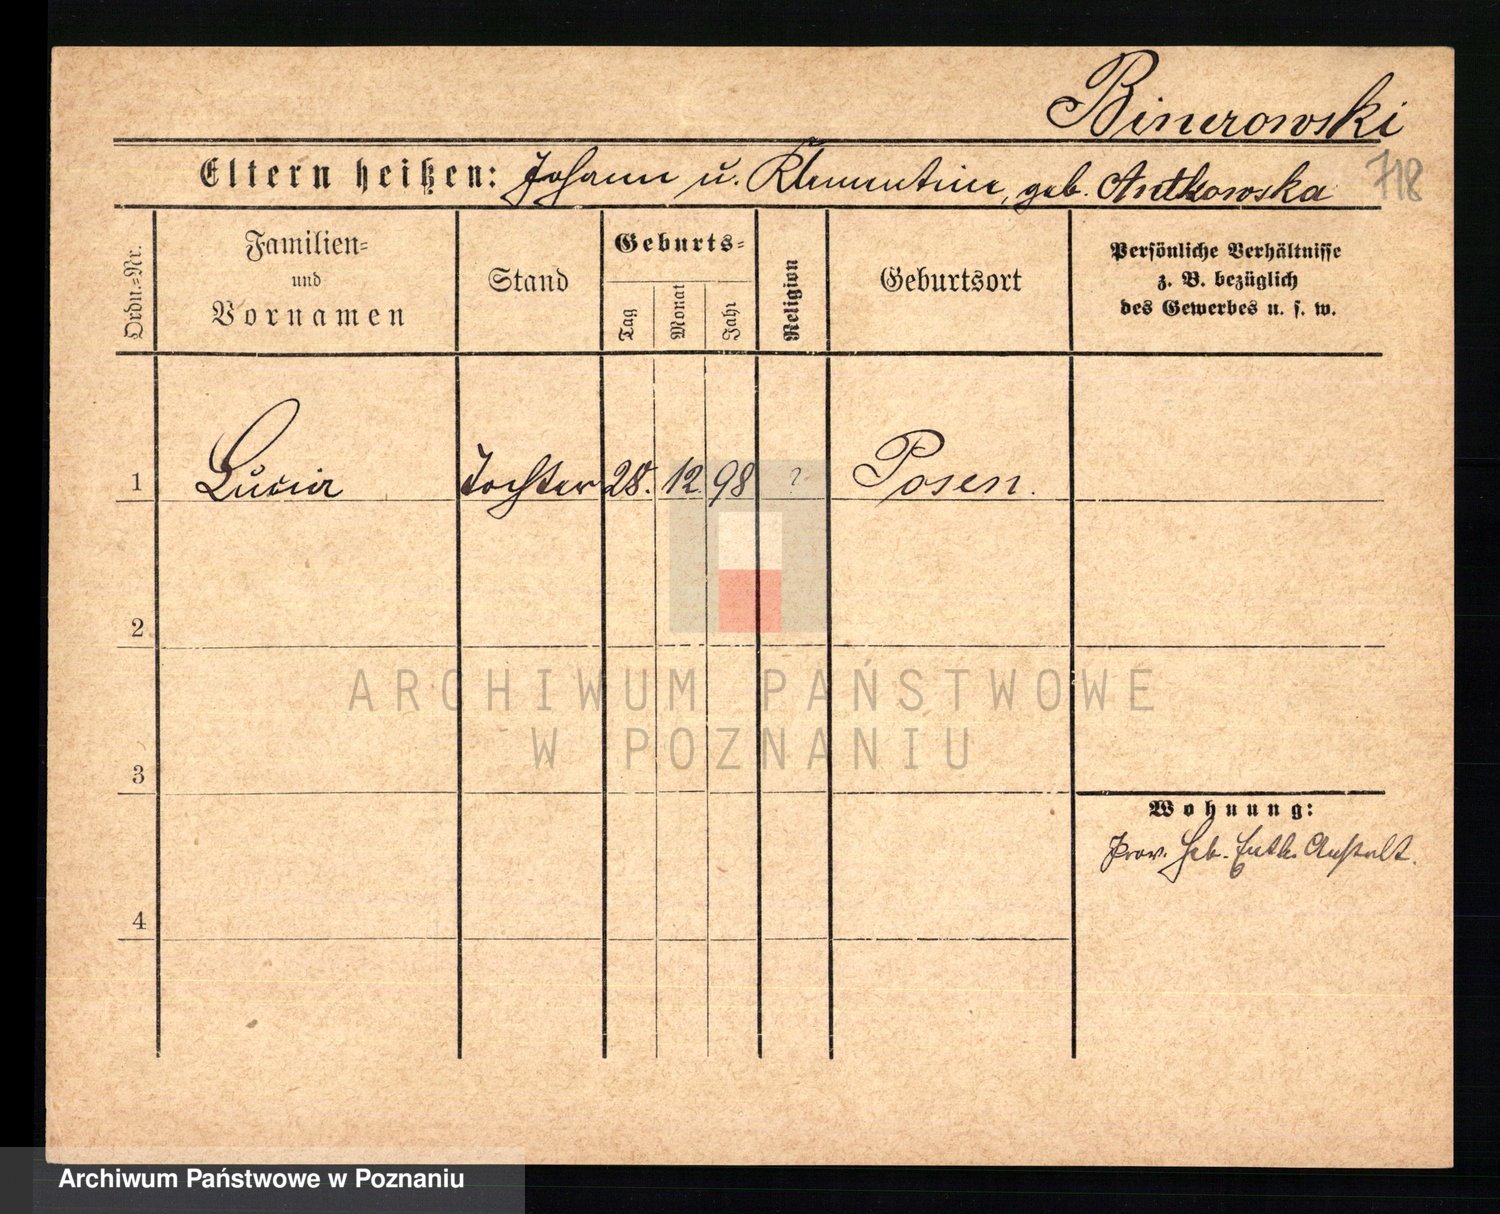 Binerowski
718
Eltern heißen: Johann u. Klementine, geb. Antkowska
Ordn.=Nr.
Familien=
und
Vornamen
Stand
Geburts=
Tag
Monat
Jahr
Religion
Geburtsort
Persönliche Verhältnisse
z. B. bezüglich
des Gewerbes u. s. w.
1 Lucia Tochter 28. 12. 98 ? Posen.
2
3
4
Wohnung:
Prov. Heb. Entb. Anstalt.
ARCHIWUM PAŃSTWOWE
W POZNANIU
Archiwum Państwowe w Poznaniu